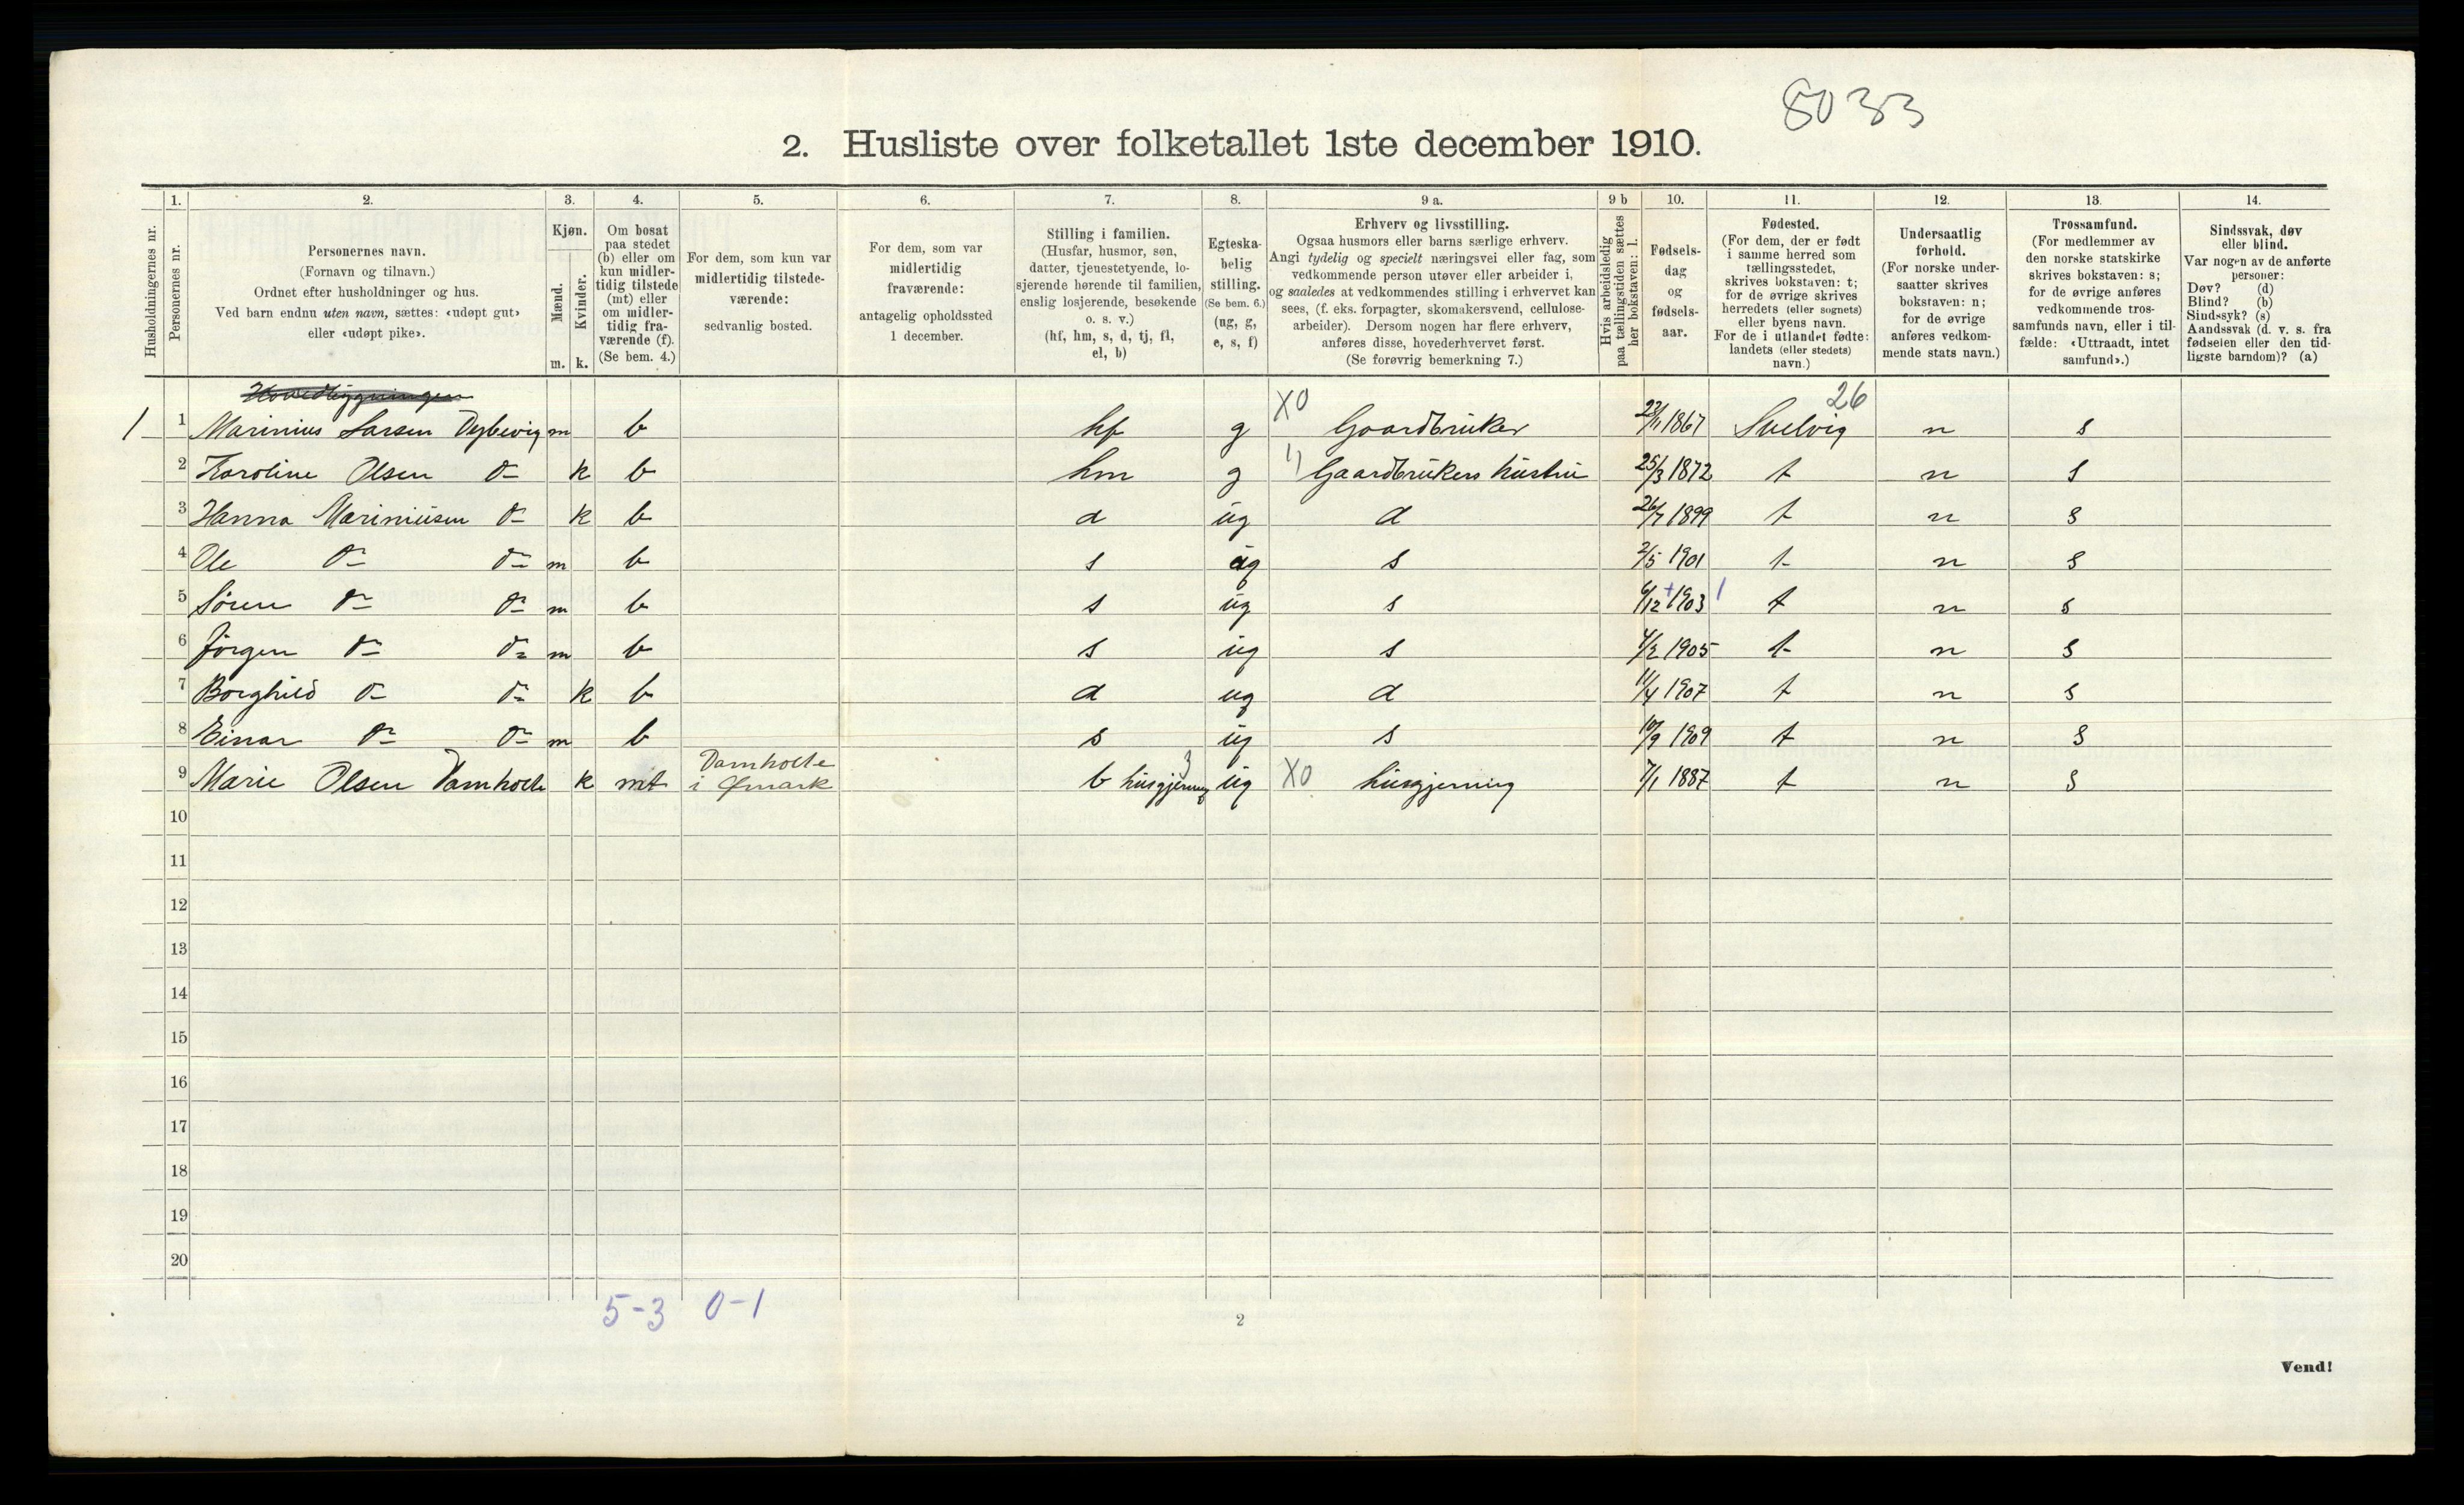 8033
2. Husliste over folketallet 1ste december 1910.
Husholdningernes nr.
1.
Personernes nr.
2.
Personernes navn.
(Fornavn og tilnavn.)
Ordnet efter husholdninger og hus.
Ved barn endnu uten navn, sættes: «udøpt gut»
eller «udøpt pike».
3.
Kjøn.
Mænd.
Kvinder.
m. k.
4.
Om bosat
paa stedet
(b) eller om
kun midler-
tidig tilstede
(mt) eller
om midler-
tidig fra-
værende (f).
(Se bem. 4.)
5.
For dem, som kun var
midlertidig tilstede-
værende:
sedvanlig bosted.
6.
For dem, som var
midlertidig
fraværende:
antagelig opholdssted
1 december.
7.
Stilling i familien.
(Husfar, husmor, søn,
datter, tjenestetyende, lo-
sjerende hørende til familien,
enslig losjerende, besøkende
o. s. v.)
(hf, hm, s, d, tj, fl,
el, b)
8.
Egteska-
belig
stilling.
(Se bem. 6.)
(ug, g,
e, s, f)
9 a.
Erhverv og livsstilling.
Ogsaa husmors eller barns særlige erhverv.
Angi tydelig og specielt næringsvei eller fag, som
vedkommende person utøver eller arbeider i,
og saaledes at vedkommendes stilling i erhvervet kan
sees, (f. eks. forpagter, skomakersvend, cellulose-
arbeider). Dersom nogen har flere erhverv,
anføres disse, hovederhvervet først.
(Se forøvrig bemerkning 7.)
9 b
Hvis arbeidsledig
paa tællingstiden sættes
her bokstaven: l.
10.
Fødsels-
dag
og
fødsels-
aar.
11.
Fødested.
(For dem, der er født
i samme herred som
tællingsstedet,
skrives bokstaven: t;
for de øvrige skrives
herredets (eller sognets)
eller byens navn.
For de i utlandet fødte:
landets (eller stedets)
navn.)
12.
Undersaatlig
forhold.
(For norske under-
saatter skrives
bokstaven: n;
for de øvrige
anføres vedkom-
mende stats navn.)
13.
Trossamfund.
(For medlemmer av
den norske statskirke
skrives bokstaven: s;
for de øvrige anføres
vedkommende tros-
samfunds navn, eller i til-
fælde: «Uttraadt, intet
samfund».)
14.
Sindssvak, døv
eller blind.
Var nogen av de anførte
personer:
Døv? (d)
Blind? (b)
Sindssyk? (s)
Aandssvak (d. v. s. fra
fødselen eller den tid-
ligste barndom)? (a)
Hovedbygningen
X0 26
1 1 Marinius Larsen Dybevig m b hf g Gaardbruker 1867 Svelvig n s
2 Karoline Olsen do k b hm g 1) Gaardbrukers hustru 25/3 1872 t n s
3 Hanna Mariniusen do k b d ug d 26/7 1899 t n s
4 Ole do do m b s ug s 2/5 1901 t n s
5 Sören do do m b s ug s 6/12 1903 1 t n s
6 Jörgen do do m b s ug s 4/2 1905 t n s
7 Borghild do do k b d ug d 11/4 1907 t n s
8 Einar do do m b s ug s 10/9 1909 t n s
9 Marie Olsen Damholte k mt Damholte i Ømark b husgjerning 3 ug X0 husgjerning 7/1 1887 t n s
10
11
12
13
14
15
16
17
18
19
20
5-3 0-1
2
Vend!